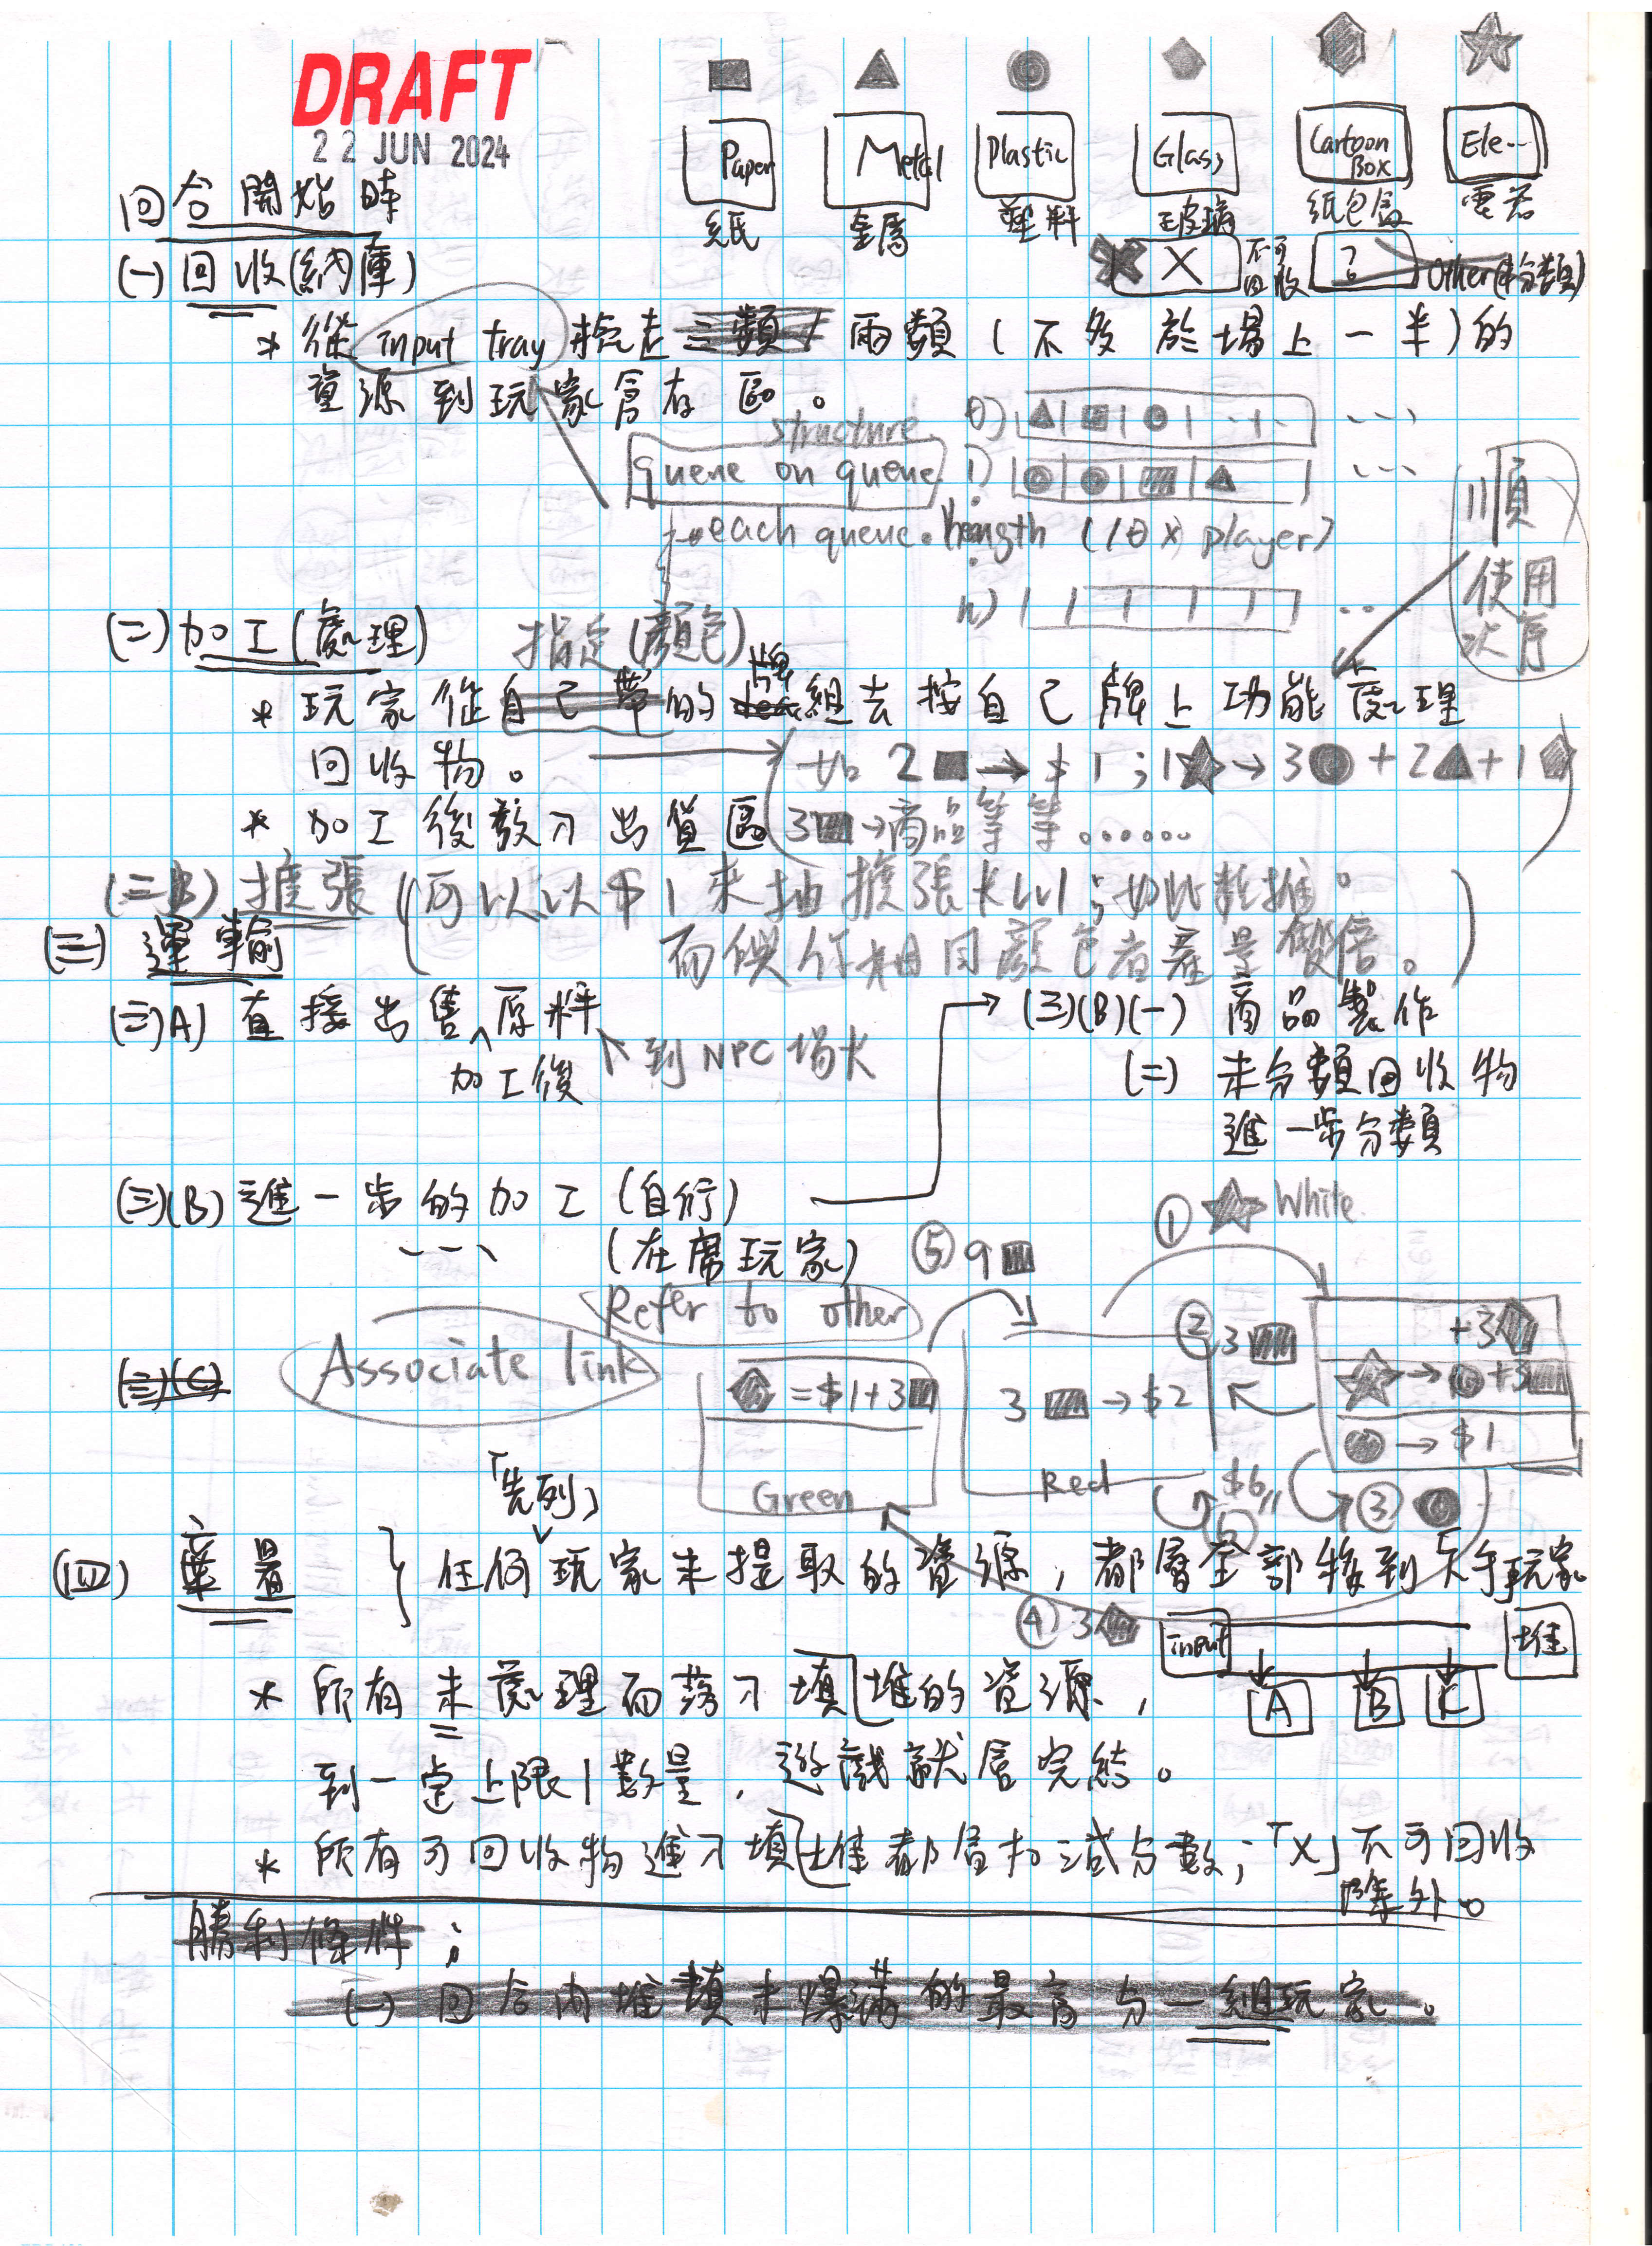 DRAFT
22 JUN 2024
Paper
Metal
Plastic
Glass
Cartoon Box
Ele...
紙
金屬
塑料
玻璃
紙包盒
電器
回合開始時
X
不可回收
?
Other(未分類)
(一) 回收(納庫)
* 從 input tray 拾走 三類 / 兩類 (不多於場上一半) 的
資源到玩家儲存區。
structure
queue on queue
0)
1)
each queue.length (10 x player)
n)
順
使用
次序
(二) 加工(處理)
指定(顏色)
* 玩家從自己帶的牌組去按自己牌上功能處理
回收物。
如 2 → $1 ; 1 → 3 + 2 + 1
* 加工後放入出貨區
3 → 商品等等......
(二B) 擴張 (可以以 $1 來抽擴張 Lv1 ; 如此類推。
而使作相同顏色者產量雙倍。)
(三) 運輸
(三)A) 直接出售 加工後 原料
到 NPC 場
(三)(B)(一) 商品製作
(二) 未分類回收物
進一步分類
(三)(B) 進一步的加工 (自行)
(在席玩家)
① White
⑤ 9
Refer to other
Associate link
(三)(C)
② 3
+3
= $1+3
3 → $2
→ +3
→ $1
Green
Red
$6
③
「先列」
(四) 棄置
任何玩家未提取的資源,都會全部移到下手玩家
④ 3
input
堆
A
B
C
* 所有未處理而落入堆填的資源,
到一定上限數量,遊戲就會完結。
* 所有可回收物進入堆填都會扣減分數;「X」不可回收
除外。
勝利條件:
(一) 回合內堆填未爆滿的最高分一組玩家。